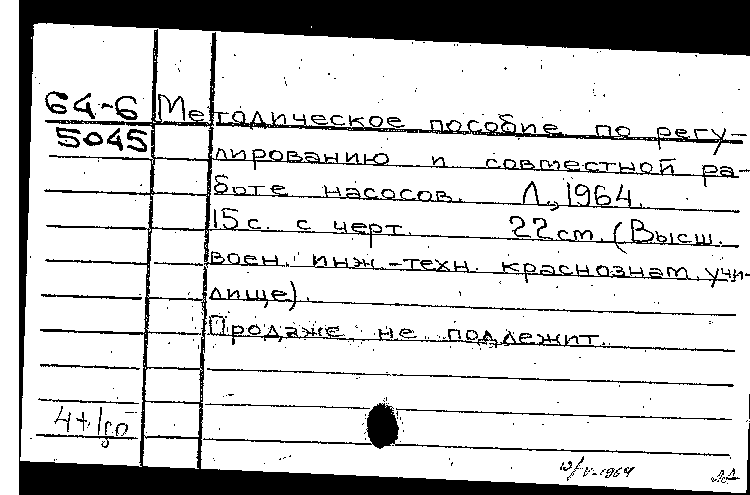 64-6 Методическое пособие по регу-
5045 лированию и совместной ра-
боте насосов. Л., 1964.
15 с. с черт. 22 см. (Высш.
воен. инж.-техн. краснознам. учи-
лище).
Продаже не подлежит.